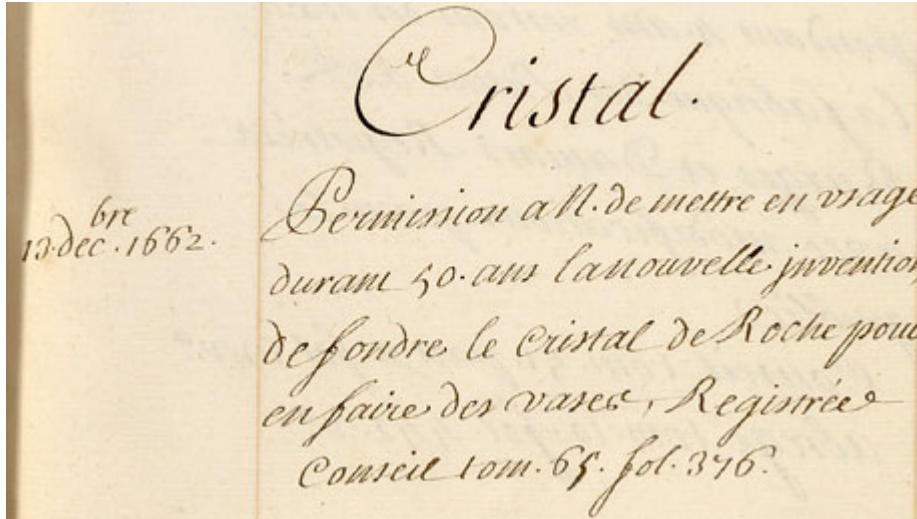 Cristal.
13. dec.bre 1662.
Permission a N. de mettre en vsage
durant 50. ans la nouvelle jnvention
de fondre le cristal de Roche pour
en faire des vases, Registrée
Conseil tom. 65. fol. 376.